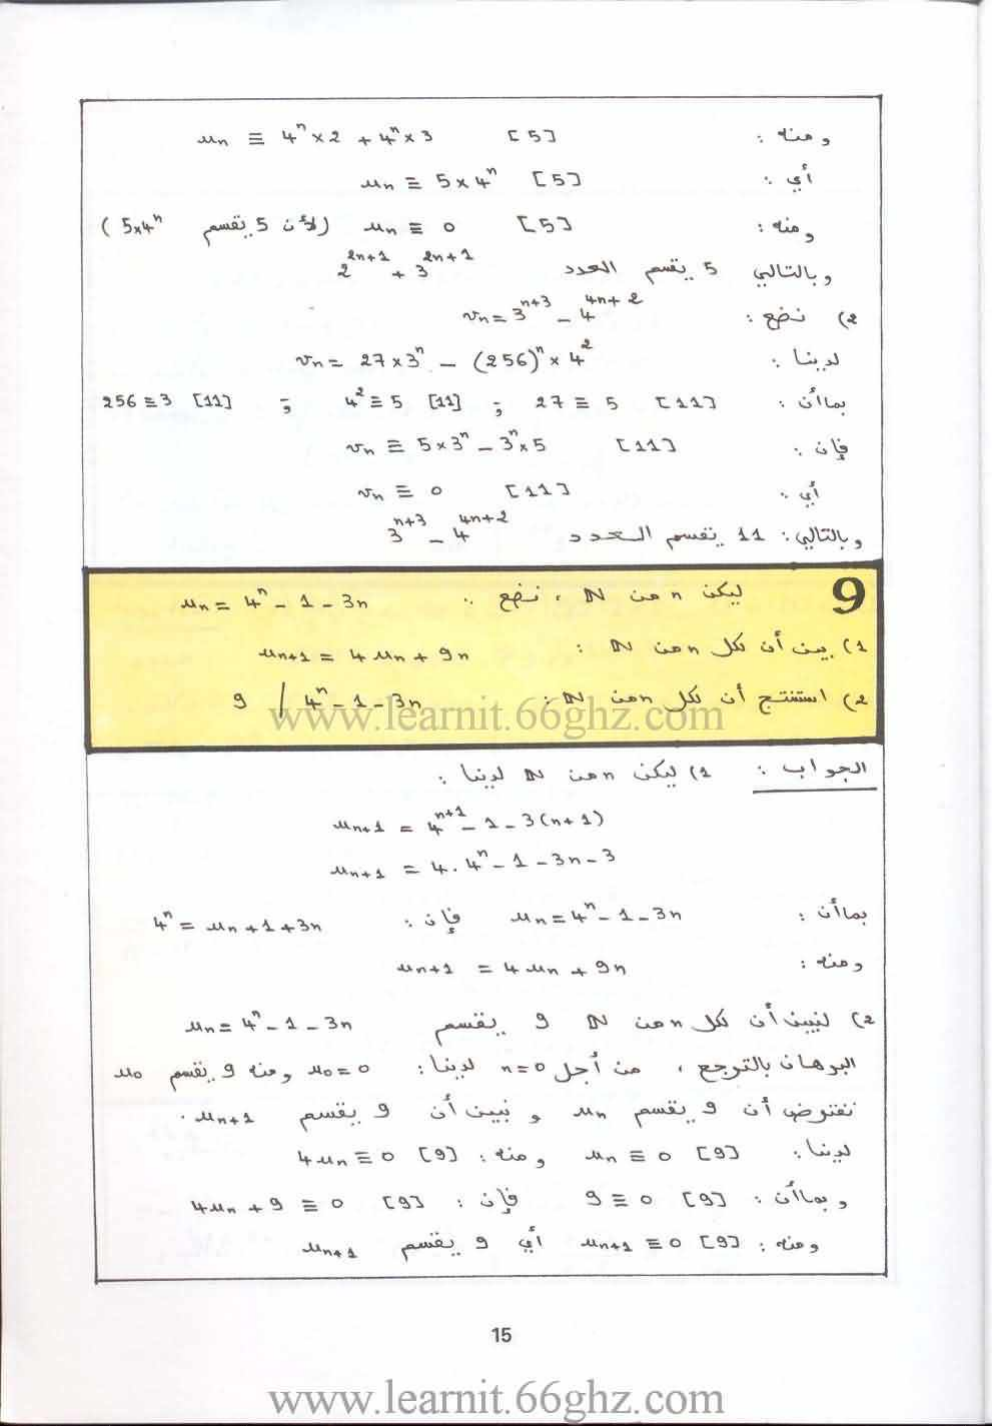 ومنه : uₙ ≡ 4ⁿ×2 + 4ⁿ×3 [5]
أي : uₙ ≡ 5×4ⁿ [5]
ومنه : uₙ ≡ 0 [5] (لأن 5 يقسم 5×4ⁿ)
وبالتالي 5 يقسم العدد 2²ⁿ⁺¹ + 3²ⁿ⁺¹
2) نضع : vₙ = 3ⁿ⁺³ - 4⁴ⁿ⁺²
لدينا : vₙ = 27×3ⁿ - (256)ⁿ×4²
بما أن : 27 ≡ 5 [11] ; 4² ≡ 5 [11] ; 256 ≡ 3 [11]
فإن : vₙ ≡ 5×3ⁿ - 3ⁿ×5 [11]
أي : vₙ ≡ 0 [11]
وبالتالي : 11 يقسم العدد 3ⁿ⁺³ - 4⁴ⁿ⁺²
9 ليكن n من ℕ ، نضع : uₙ = 4ⁿ - 1 - 3n
1) بين أن لكل n من ℕ : uₙ₊₁ = 4uₙ + 9n
2) استنتج أن لكل n من ℕ : 9 / 4ⁿ - 1 - 3n
www.learnit.66ghz.com
الجواب : 1) ليكن n من ℕ لدينا :
uₙ₊₁ = 4ⁿ⁺¹ - 1 - 3(n+1)
uₙ₊₁ = 4.4ⁿ - 1 - 3n - 3
بما أن : uₙ = 4ⁿ - 1 - 3n فإن : 4ⁿ = uₙ + 1 + 3n
ومنه : uₙ₊₁ = 4uₙ + 9n
2) لنبين أن لكل n من ℕ 9 يقسم uₙ = 4ⁿ - 1 - 3n
البرهان بالترجع ، من أجل n=0 لدينا : u₀=0 ومنه 9 يقسم u₀
نفترض أن 9 يقسم uₙ و نبين أن 9 يقسم uₙ₊₁ .
لدينا : uₙ ≡ 0 [9] ومنه : 4uₙ ≡ 0 [9]
وبما أن : 9 ≡ 0 [9] فإن : 4uₙ + 9 ≡ 0 [9]
ومنه : uₙ₊₁ ≡ 0 [9] أي 9 يقسم uₙ₊₁
15
www.learnit.66ghz.com